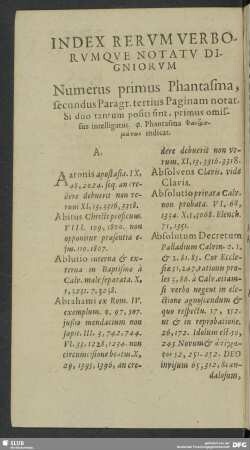 INDEX RERVM VERBO-
RVMQVE NOTATV DI-
GNIORVM
Numerus primus Phantasma,
secundus Paragr. tertius Paginam notat.
Si duo tantum positi sint, primus omis-
sus intelligatur. φ. Phantasma
indicat.
A.
Aaronis apostasia. IX,
48, 2024. seq. an cre-
dere debuerit non ve-
rum XI, 13, 3316, 3318.
Abitus Christi proficuus.
VIII. 109, 1820. non
opponitur præsentia e-
jus. 110. 1807.
Ablutio interna & ex-
terna in Baptismo à
Calv. male separata. X,
1, 2231. 7. 3258.
Abrahami ex Rom. IV.
exemplum. 2, 97, 387.
jussu mendacium non
Japit. III. 3, 742, 744.
VI. 33, 1228, 1234. non
circumcisione beatus. X,
29, 1395, 1396, an cre-
dere debuerit non ve-
rum, XI, 13, 3316. 3318.
Absolvens Clavis. vide
Clavis.
Absolutio privata Calv.
non probata. VI, 68,
1354. X. 1, 2068. Elench.
71, 1351.
Absolutum Decretum
Palladium Calvin. 2. 1,
& 2. 81. 85. Cur Eccle-
siæ 51. 247. rationi pro-
les 5, 88. à Calv. etiam-
si verbo negent in ele-
ctione agnoscendum &
quo respectu. 17, 152.
ut & in reprobatione.
26, 172. Idolum est 50,
245 Novum &
52, 251. 252. DEO
invisum 65, 312, scan-
dalosum,
SLUB